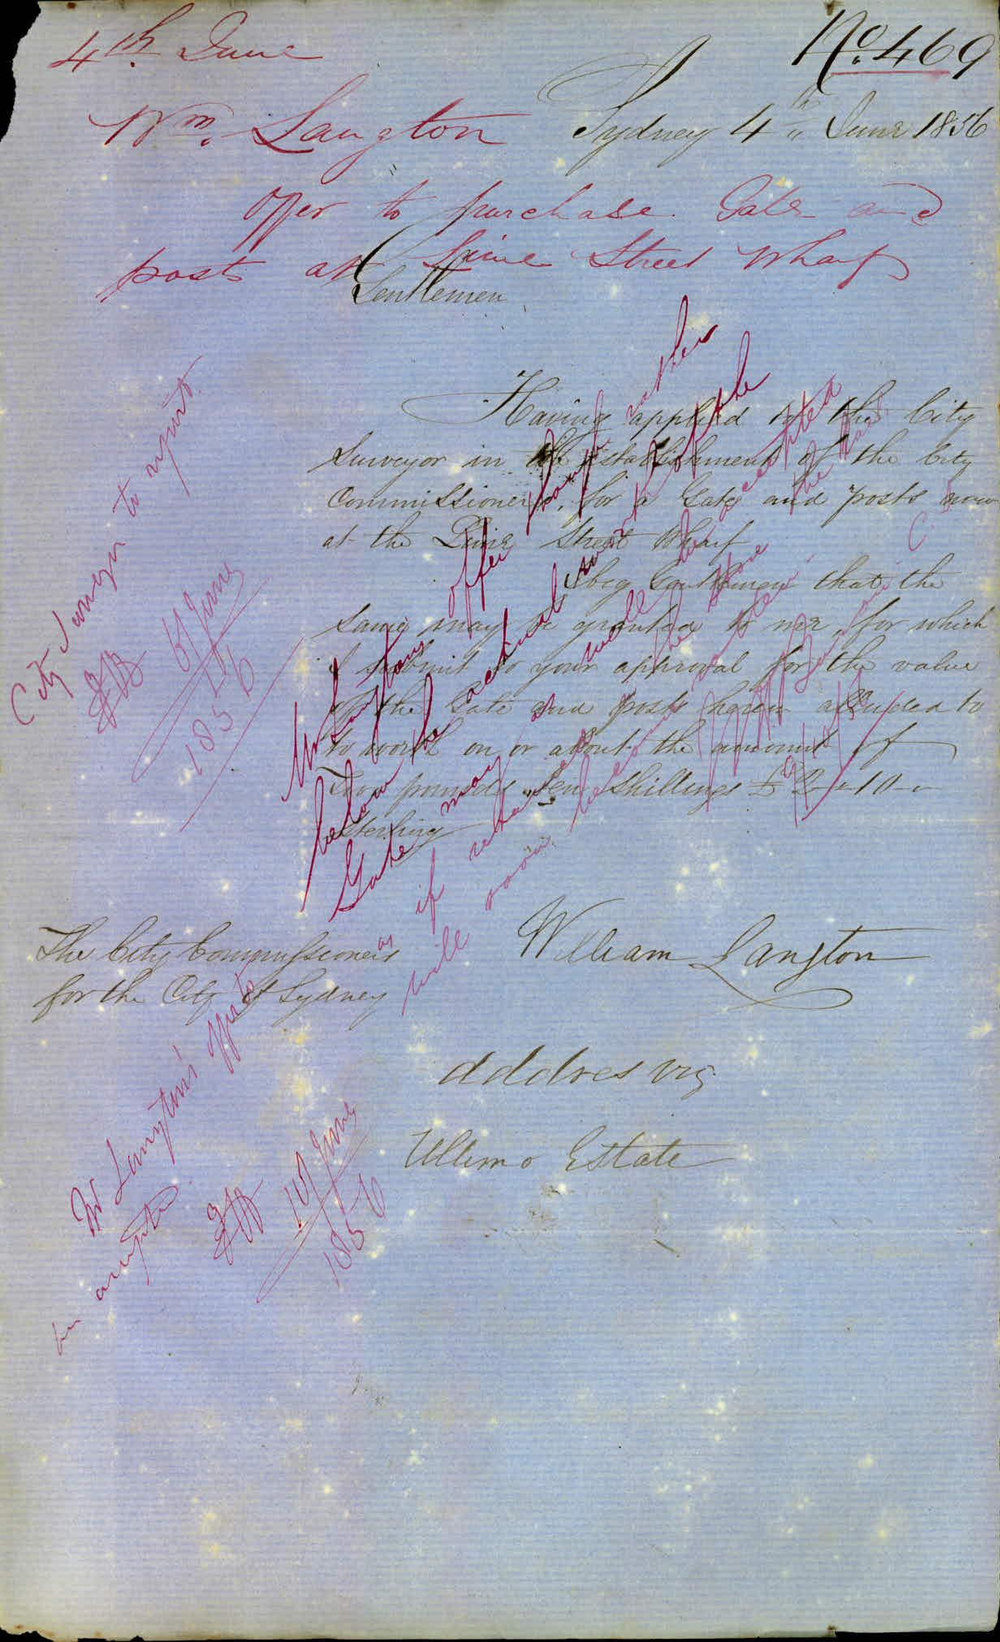 No. 469
4th June
Wm. Langton
Sydney 4th June 1856
Offer to purchase Gate and
posts at Lime Street Wharf
Gentlemen
Having applied to the City
Surveyor in the Establishment of the City
Commissioners, for a Gate and posts now
at the Lime Street Wharf
I beg Gentlemen that the
same may be granted to me, for which
I submit to your approval for the value
of the Gate and posts herein alluded to
to worth on or about the amount of
Two pounds Ten Shillings £2-10-
Sterling
William Langton
The City Commissioners
for the City of Sydney
Address viz
Ultimo Estate
City Surveyor to report
6 June
1856
Mr Langtons offer though rather
below the actual worth of the
Gate may as well be accepted
if the
will soon be
Mr Langton's offer to
be accepted
10 June
1856